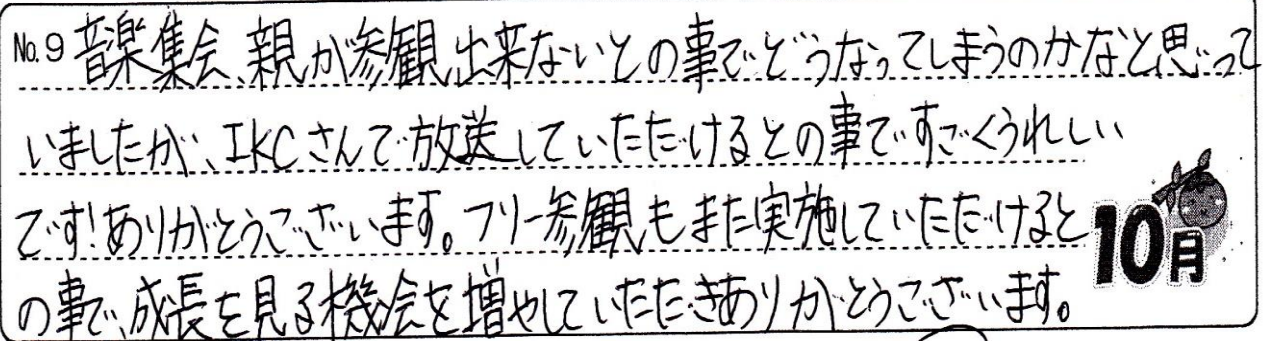 No.9 音楽集会、親が参観出来ないとの事でどうなってしまうのかなと思って
いましたが、IKCさんで放送していただけるとの事ですごくうれしい
です!ありがとうございます。フリー参観もまた実施していただけると
の事で、成長を見る機会を増やしていただきありがとうございます。
10月